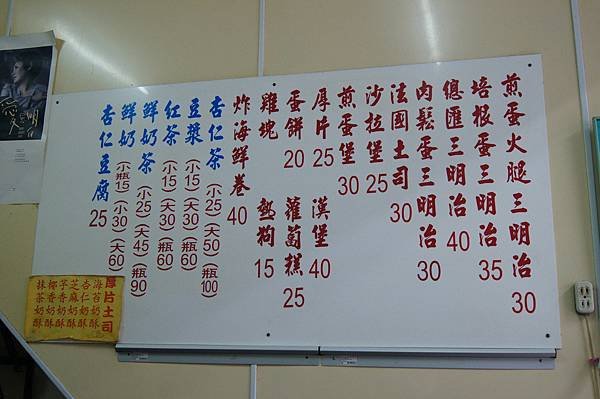 煎蛋火腿三明治30
培根蛋三明治35
傯匯三明治40
肉鬆蛋三明治30
法國土司30
沙拉堡25
煎蛋堡30
厚片25
漢堡40
蛋餅20
蘿蔔糕25
雞塊
熱狗15
炸海鮮卷40
杏仁茶(小25)(大50)(瓶100)
豆漿(小15)(大30)(瓶60)
紅茶(小15)(大30)(瓶60)
鮮奶茶(小25)(大45)(瓶90)
鮮奶(小瓶15)(小30)(大60)
杏仁豆腐25
厚片土司
海苔奶酥
杏仁奶酥
芝麻奶酥
芋香奶酥
椰香奶酥
抹茶奶酥